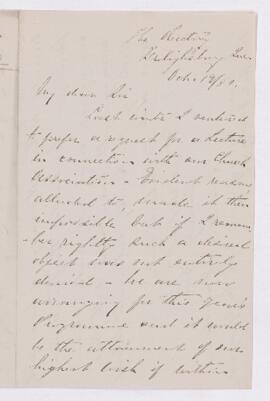 The Rectory
Oct. 19/80.
My dear Sir
Last winter I ventured
to prefer a request for a Lecture
in connection with our Church
Association - Evident reasons
attached to, made it then
impossible but if I remem
-ber rightly such a desired
object was not entirely
denied - We are now
arranging for this Year's
Programme and it would
be the attainment of our
highest wish if within